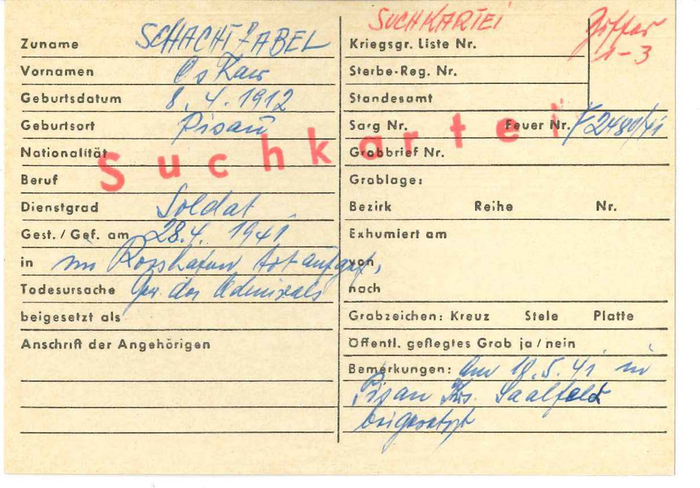 SUCHKARTEI
Ziffer
1-3
Zuname SCHACHTZABEL
Vornamen Oskar
Geburtsdatum 8. 4. 1912
Geburtsort Pisau
Nationalität
Beruf
Dienstgrad Soldat
Gest. / Gef. am 28.4. 1941.
in im Rosshafen tot aufgef,
Todesursache der des Admirals
beigesetzt als
Anschrift der Angehörigen
Suchkartei
Kriegsgr. Liste Nr.
Sterbe-Reg. Nr.
Standesamt
Sarg Nr. Feuer Nr. F 2480/41
Grabbrief Nr.
Grablage:
Bezirk Reihe Nr.
Exhumiert am
von
nach
Grabzeichen: Kreuz Stele Platte
Öffentl. gepflegtes Grab ja / nein
Bemerkungen: Am 18.5.41 in
Pisau Krs. Saalfeld
beigesetzt